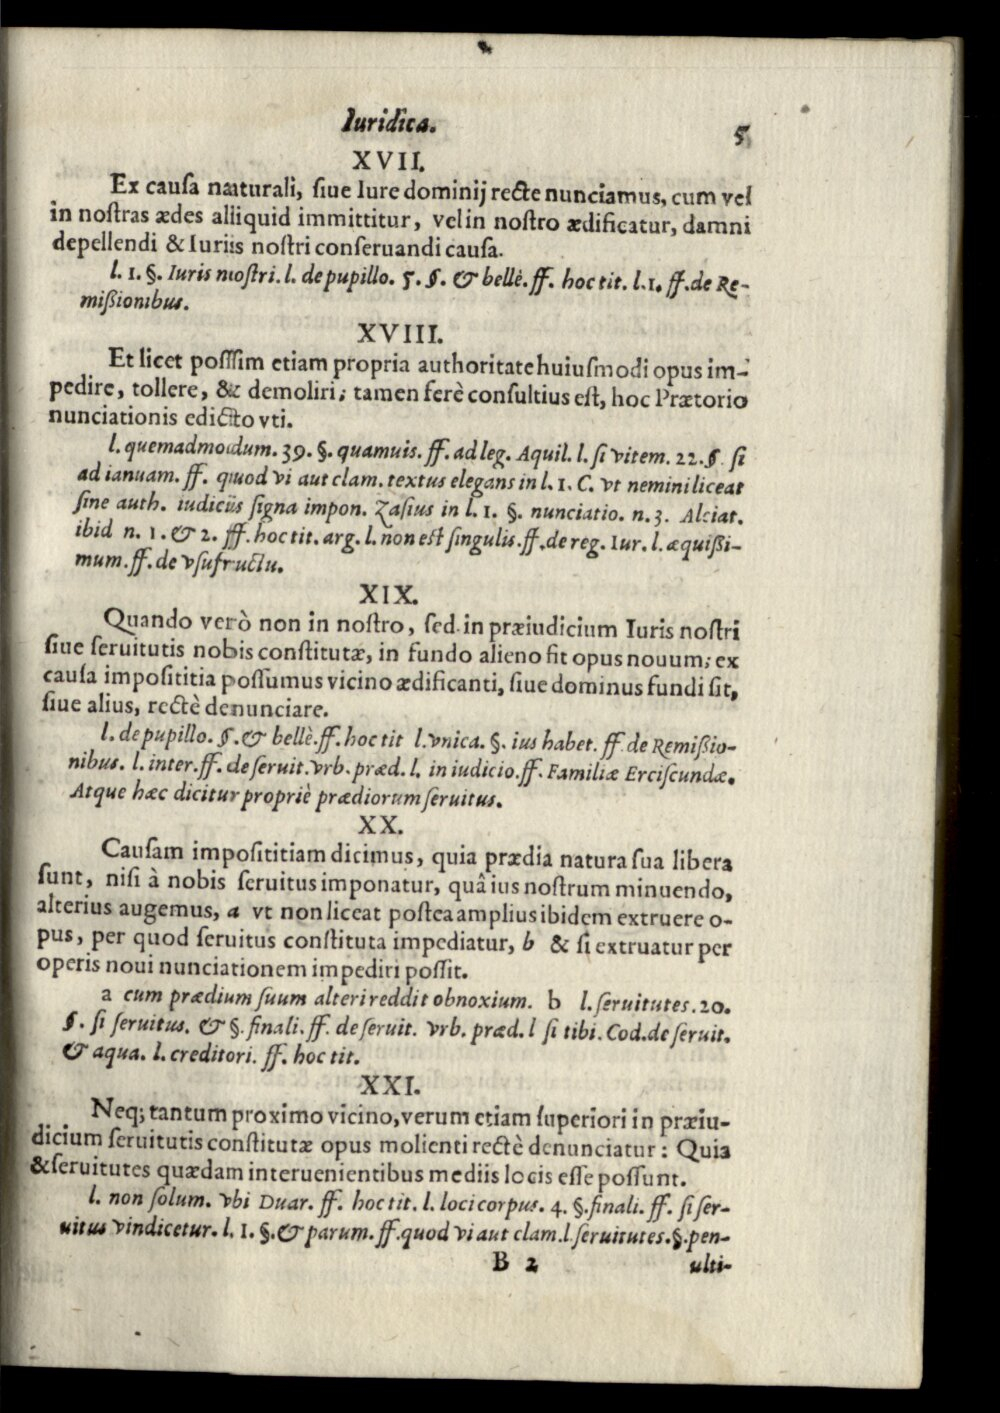 Iuridica. 5
XVII.
Ex cauſa naturali, ſiue Iure dominij recte nunciamus, cum vel
in noſtras ædes aliquid immittitur, vel in noſtro ædificatur, damni
depellendi & Iuriis noſtri conſeruandi cauſa.
l. 1. §. Iuris noſtri. l. de pupillo. 5. §. & bellè. ff. hoc tit. l. 1. ff. de Re-
mißionibus.
XVIII.
Et licet poſſim etiam propria authoritate huiuſmodi opus im-
pedire, tollere, & demoliri; tamen ferè conſultius eſt, hoc Prætorio
nunciationis edicto vti.
l. quemadmodum. 39. §. quamuis. ff. ad leg. Aquil. l. ſi vitem. 22. §. ſi
ad ianuam. ff. quod vi aut clam. textus elegans in l. 1. C. vt nemini liceat
ſine auth. iudiciis ſigna impon. Zaſius in l. 1. §. nunciatio. n. 3. Alciat.
ibid n. 1. & 2. ff. hoc tit. arg. l. non eſt ſingulis. ff. de reg. Iur. l. æquißi-
mum. ff. de vſufructu.
XIX.
Quando verò non in noſtro, ſed in præiudicium Iuris noſtri
ſiue ſeruitutis nobis conſtitutæ, in fundo alieno fit opus nouum; ex
cauſa impoſititia poſſumus vicino ædificanti, ſiue dominus fundi ſit,
ſiue alius, rectè denunciare.
l. de pupillo. §. & bellè. ff. hoc tit l. vnica. §. ius habet. ff. de Remißio-
nibus. l. inter. ff. de ſeruit. vrb. præd. l. in iudicio. ff. Familiæ Erciſcundæ.
Atque hæc dicitur propriè prædiorum ſeruitus.
XX.
Cauſam impoſititiam dicimus, quia prædia natura ſua libera
ſunt, niſi à nobis ſeruitus imponatur, quâ ius noſtrum minuendo,
alterius augemus, a vt non liceat poſtea amplius ibidem extruere o-
pus, per quod ſeruitus conſtituta impediatur, b & ſi extruatur per
operis noui nunciationem impediri poſſit.
a cum prædium ſuum alteri reddit obnoxium. b l. ſeruitutes. 20.
§. ſi ſeruitus. & §. finali. ff. de ſeruit. vrb. præd. l ſi tibi. Cod. de ſeruit.
& aqua. l. creditori. ff. hoc tit.
XXI.
Neq; tantum proximo vicino, verum etiam ſuperiori in præiu-
dicium ſeruitutis conſtitutæ opus molienti rectè denunciatur: Quia
& ſeruitutes quædam interuenientibus mediis locis eſſe poſſunt.
l. non ſolum. vbi Duar. ff. hoc tit. l. loci corpus. 4. §. finali. ff. ſi ſer-
uitus vindicetur. l. 1. §. & parum. ff. quod vi aut clam. l. ſeruitutes. §. pen-
B 2 ulti-